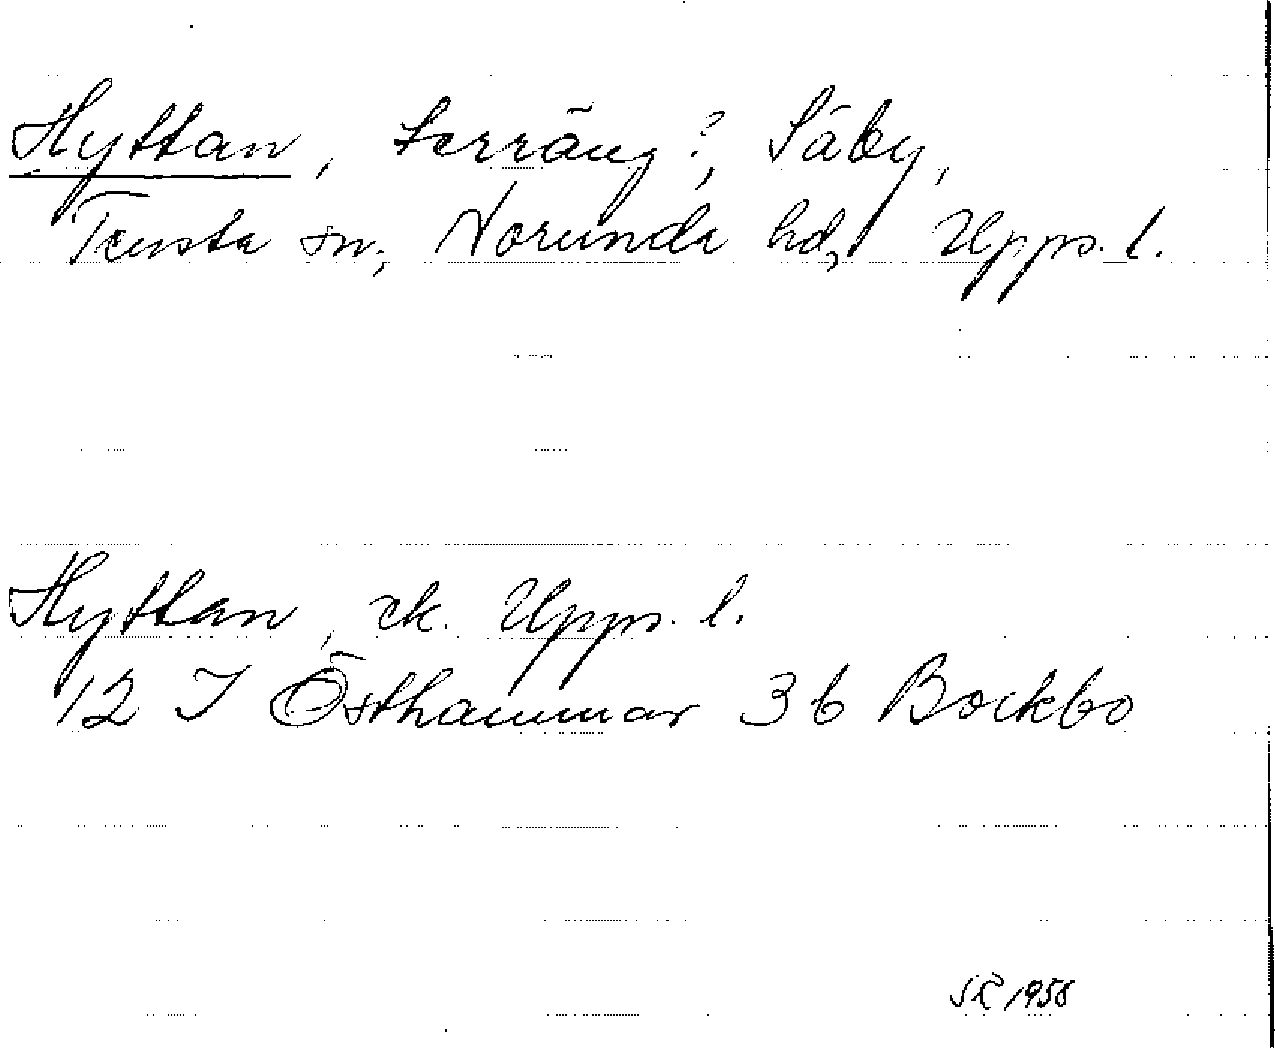 Hyttan, terräng?, Säby,
Tensta sn, Norunda hd, Upps. l.
Hyttan, ek. Upps. l.
12 I Östhammar 3b Bockbo
1958